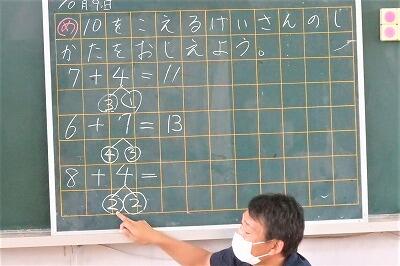 10月9日
め 10をこえるけいさんのし
かたをおしえよう。
7+4=11
3 1
6+7=13
4 3
8+4=
2 2